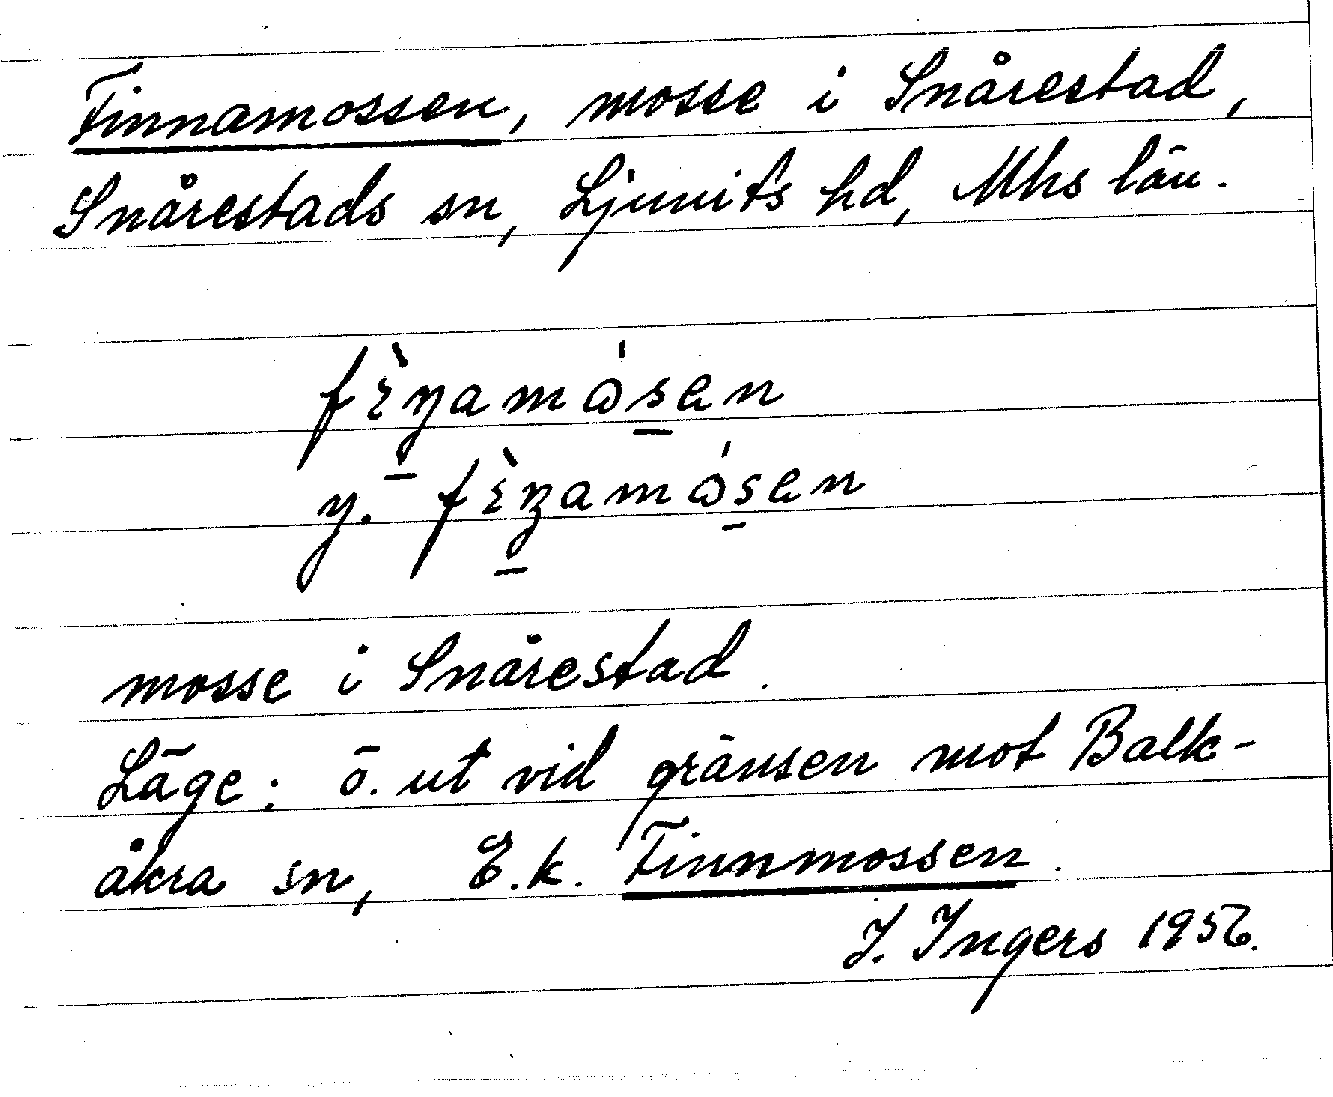 Finnamossen, mosse i Snårestad,
Snårestads sn, Ljunits hd, Mhs län.
mosse i Snårestad.
Läge: ö. ut vid gränsen mot Balk-
åkra sn, E.k. Finnmossen.
I. Ingers 1956.